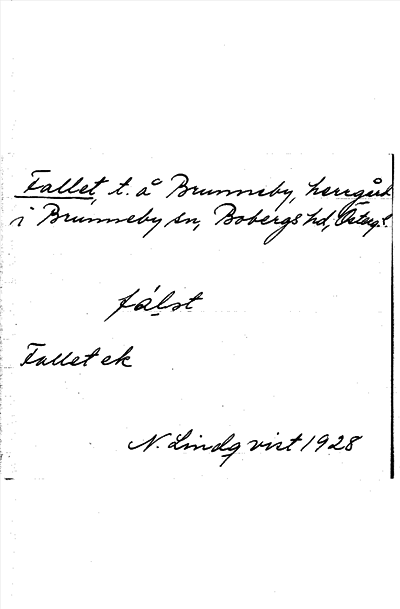 Fallet, t. å Brunneby, herrgård
i Brunneby sn, Bobergs hd, Östergl.
fálst
Fallet ek
N. Lindqvist 1928